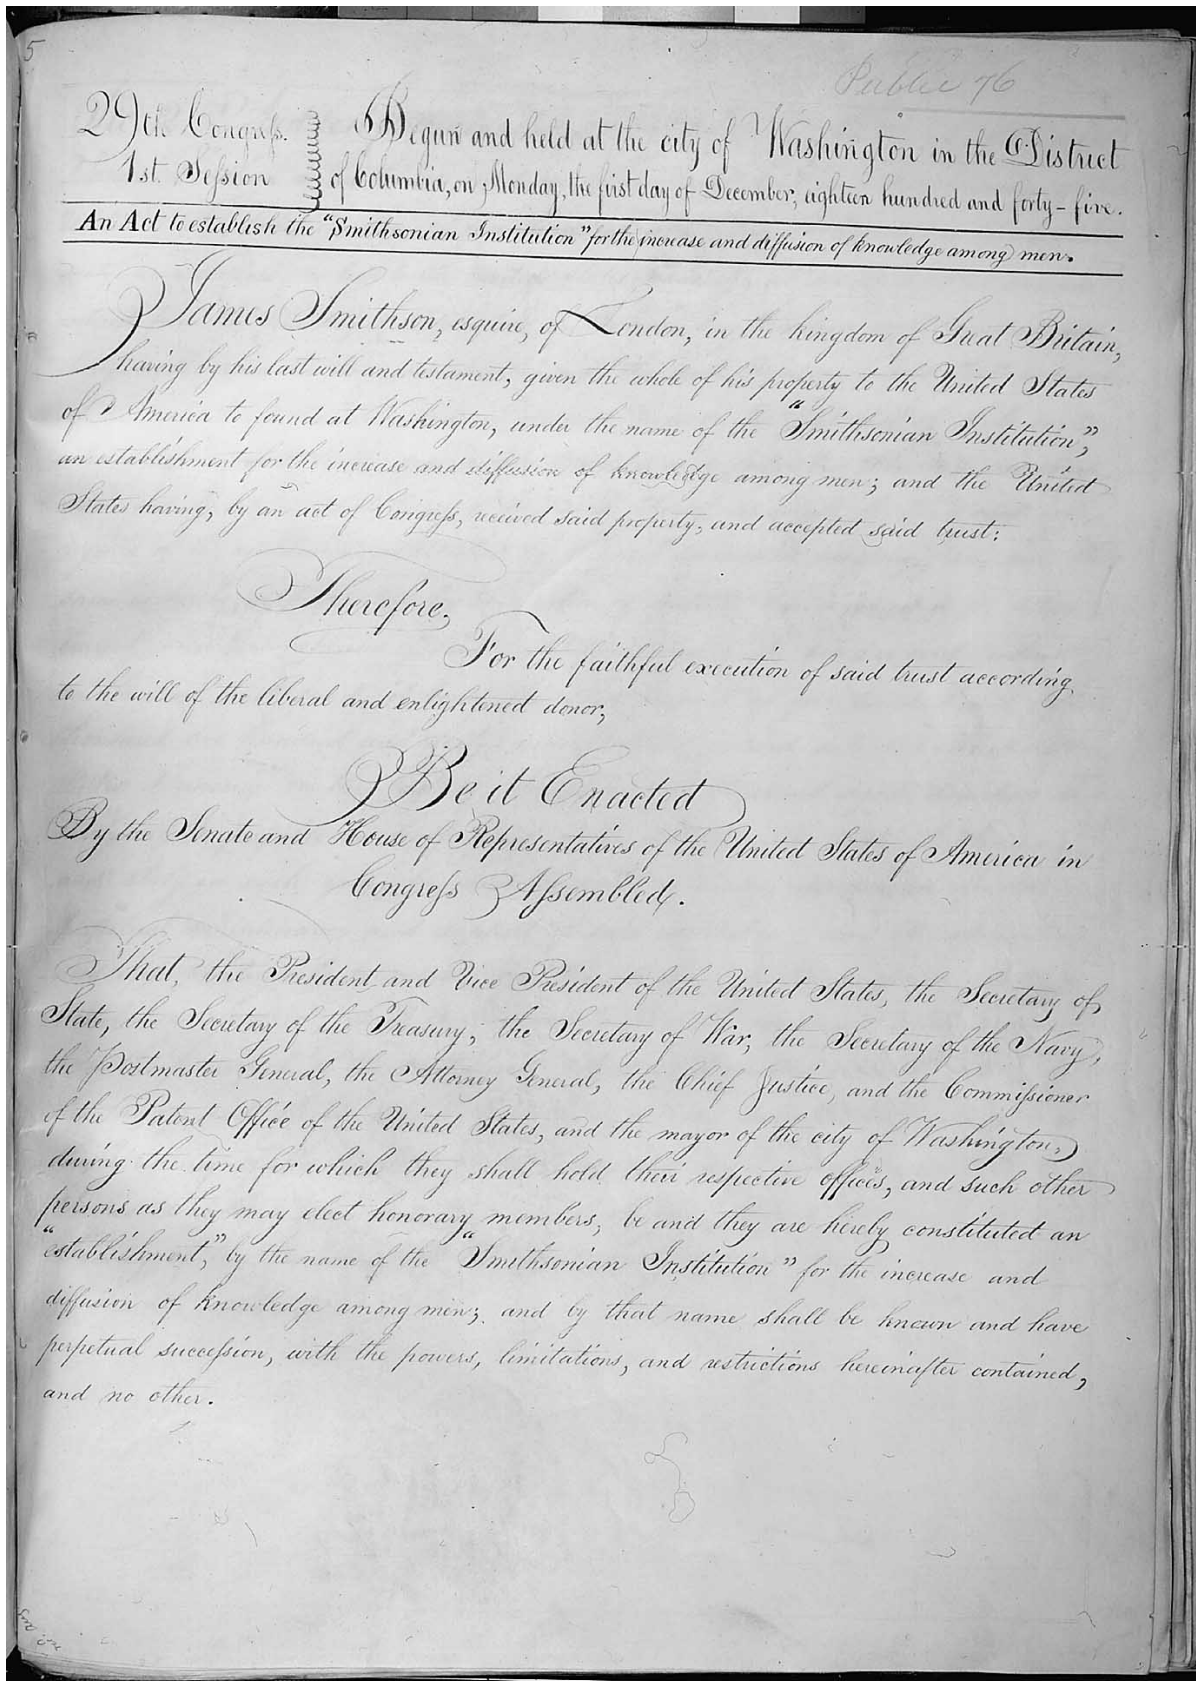 5
Public 76
29th Congress. Begun and held at the city of Washington in the District
1st. Session of Columbia, on Monday, the first day of December, eighteen hundred and forty-five.
An Act to establish the "Smithsonian Institution" for the increase and diffusion of knowledge among men.
James Smithson, esquire, of London, in the kingdom of Great Britain,
having by his last will and testament, given the whole of his property to the United States
of America to found at Washington, under the name of the "Smithsonian Institution",
an establishment for the increase and diffusion of knowledge among men; and the United
States having, by an act of Congress, received said property, and accepted said trust:
Therefore,
For the faithful execution of said trust according
to the will of the liberal and enlightened donor,
Be it Enacted
By the Senate and House of Representatives of the United States of America in
Congress Assembled.
That, the President and Vice President of the United States, the Secretary of
State, the Secretary of the Treasury, the Secretary of War, the Secretary of the Navy,
the Postmaster General, the Attorney General, the Chief Justice, and the Commissioner
of the Patent Office of the United States, and the mayor of the city of Washington,
during the time for which they shall hold their respective offices, and such other
persons as they may elect honorary members, be and they are hereby constituted an
"establishment," by the name of the "Smithsonian Institution" for the increase and
diffusion of knowledge among men; and by that name shall be known and have
perpetual succession, with the powers, limitations, and restrictions hereinafter contained,
and no other.